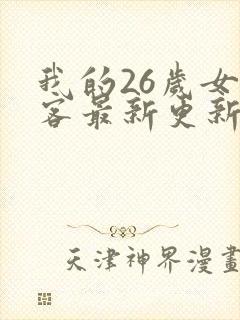 我的26歲女
客最新更新
天津神界漫畫